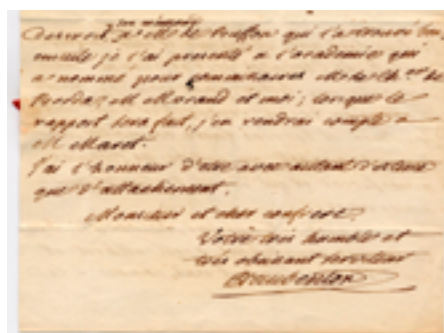 son mémoire
a Mr de Buffon qui l'a trouvé bon
ensuite je l'ai presenté a l'academie qui
a nommé pour commissaires Mrs le Cher de
Borda, M Morand et moi; lorsque le
rapport sera fait, j'en rendrai compte a
M Maret.
J'ai l'honneur d'etre avec autant d'estime
que d'attachement.
Monsieur et cher confrere.
Votre tres humble et
tres obeissant serviteur
Daubenton